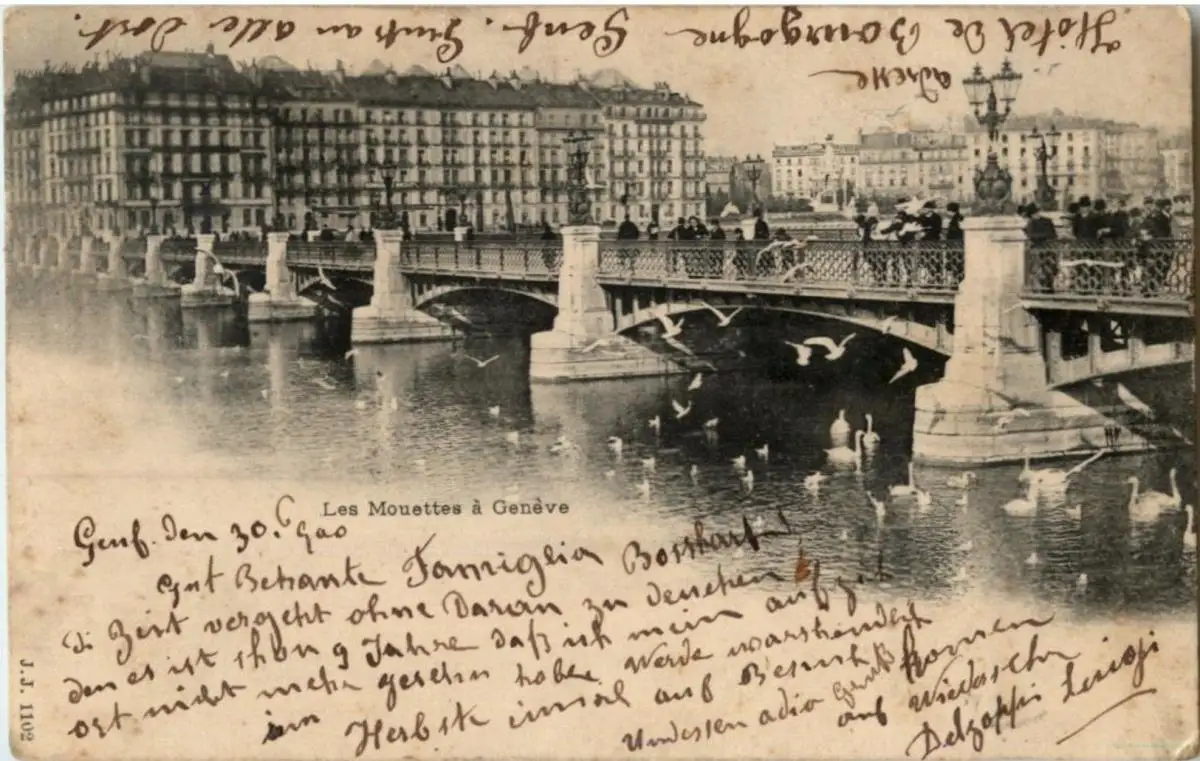 Hôtel De Bourgogne Genf. Gruss an alle Dort.
adresse
Les Mouettes à Genève
J.J. 1102
Genf. den 30.
Gut Bekante Famiglia Bosshart
Di Zeit vergeht ohne Daran zu denchen
den es ist schon 9 Jahre daß ich mein
ort nicht mehr gesehn habe Werde
im Herbste imal auf Besuch Komen
Undessen adio
auf Wiedersehn
Delzoppo Luigi